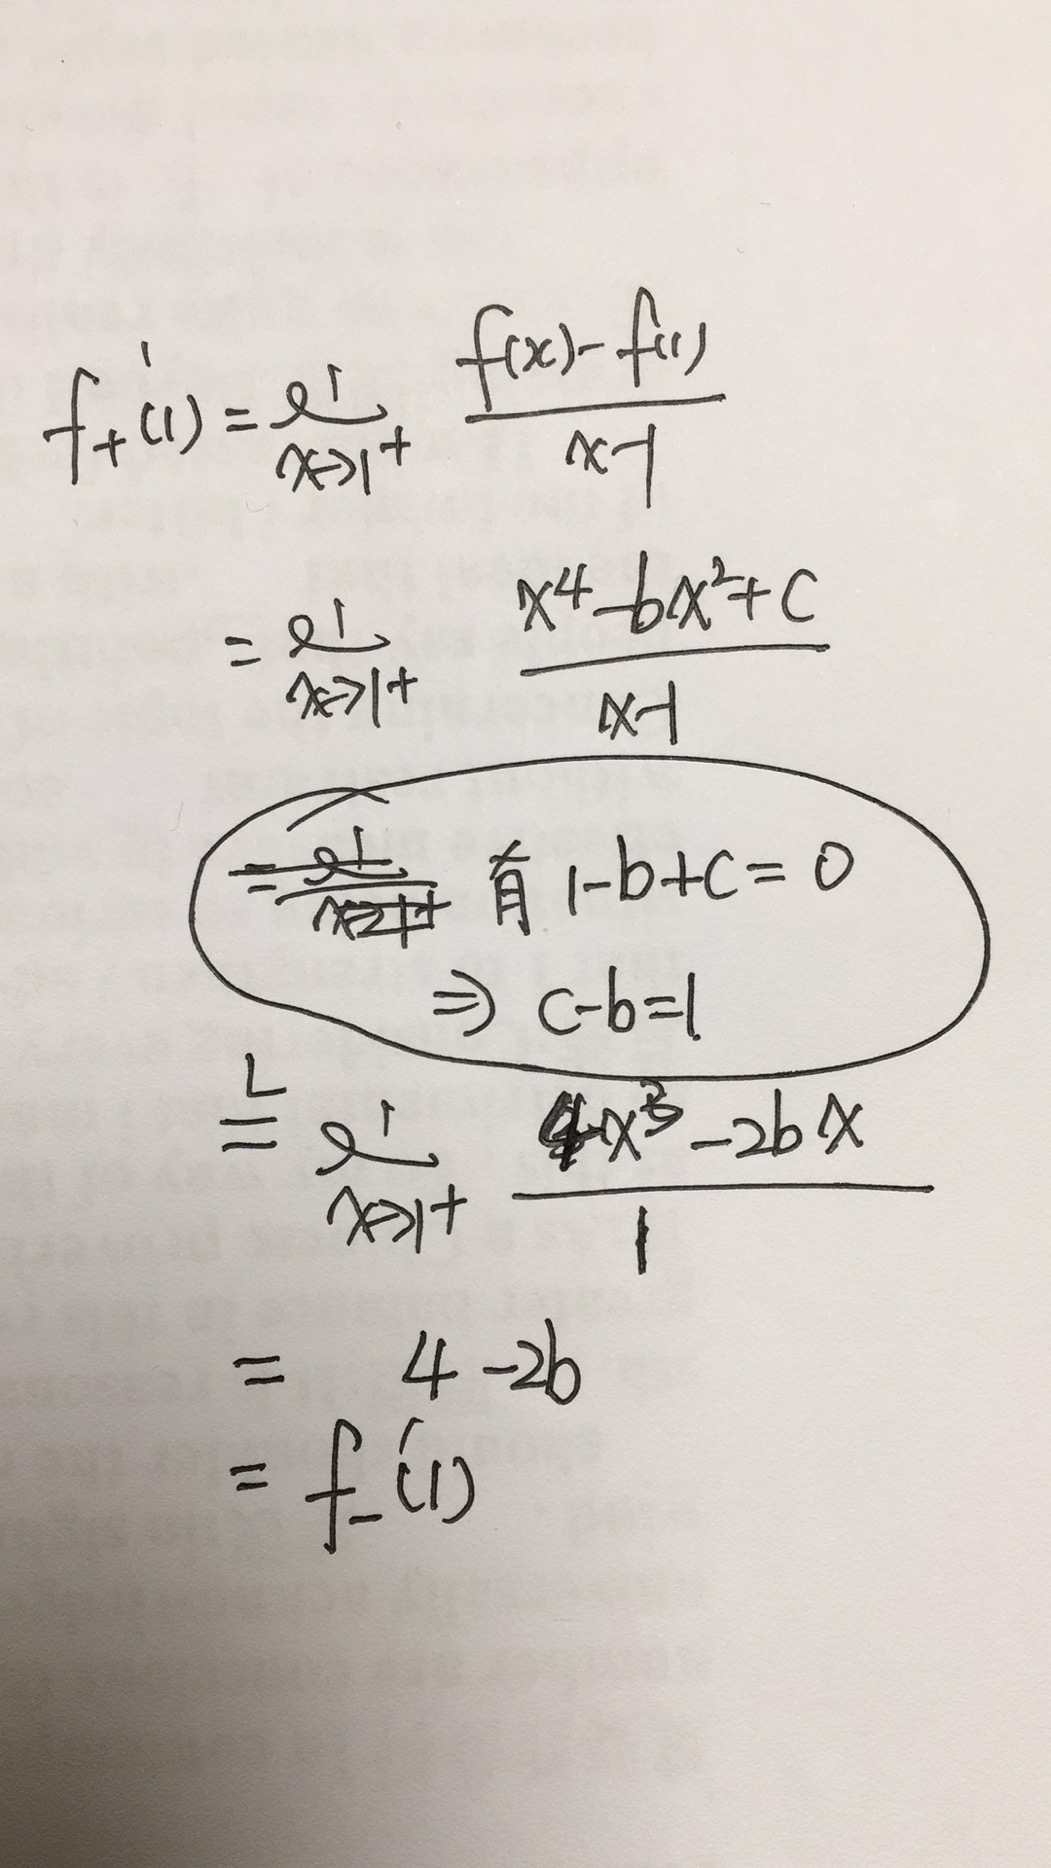 f₊'(1) = lim x→1⁺ (f(x) - f(1)) / (x-1)
= lim x→1⁺ (x⁴ - bx² + c) / (x-1)
有 1-b+c = 0
⇒ c-b=1
=ᴸ lim x→1⁺ (4x³ - 2bx) / 1
= 4 - 2b
= f₋'(1)